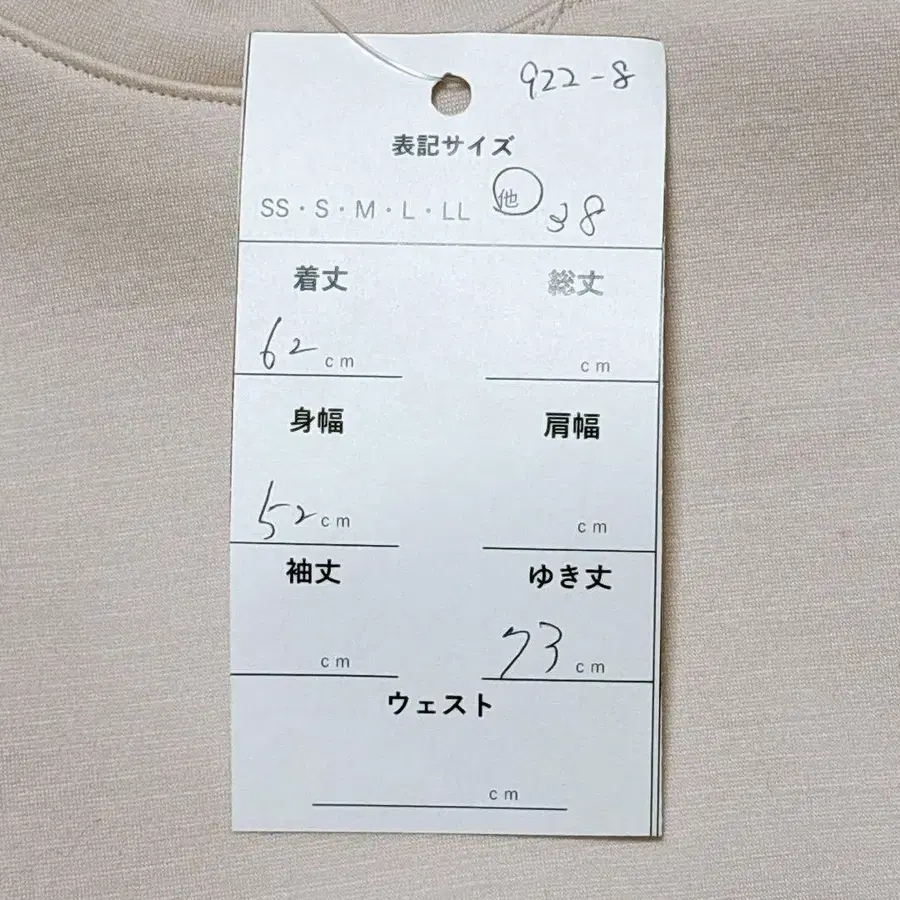 922-8
表記サイズ
SS・S・M・L・LL 他 38
着丈 総丈
62cm cm
身幅 肩幅
52cm cm
袖丈 ゆき丈
cm 73cm
ウェスト
cm